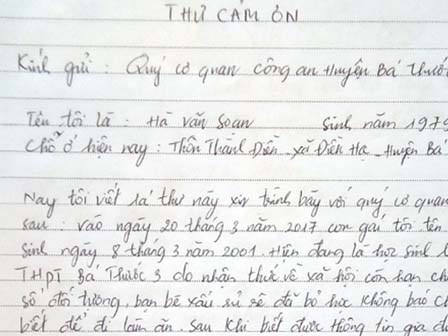 THƯ CẢM ƠN
Kính gửi : Quý cơ quan công an Huyện Bá Thước
Tên tôi là : Hà Văn Soan sinh năm 1979
Chỗ ở hiện nay : Thôn Thành Điền - xã Điền Hạ - Huyện Bá
Nay tôi viết lá thư này xin trình bày với quý cơ quan
sau : vào ngày 20 tháng 3 năm 2017 con gái tôi tên
Sinh ngày 8 tháng 3 năm 2001. Hiện đang là học sinh l
THPT Bá Thước 3 do nhận thức về xã hội còn hạn ch
số đối tượng, bạn bè xấu, rủ sẽ đã bỏ học không báo ch
biết để đi làm ăn. Sau khi biết được thông tin gia đ